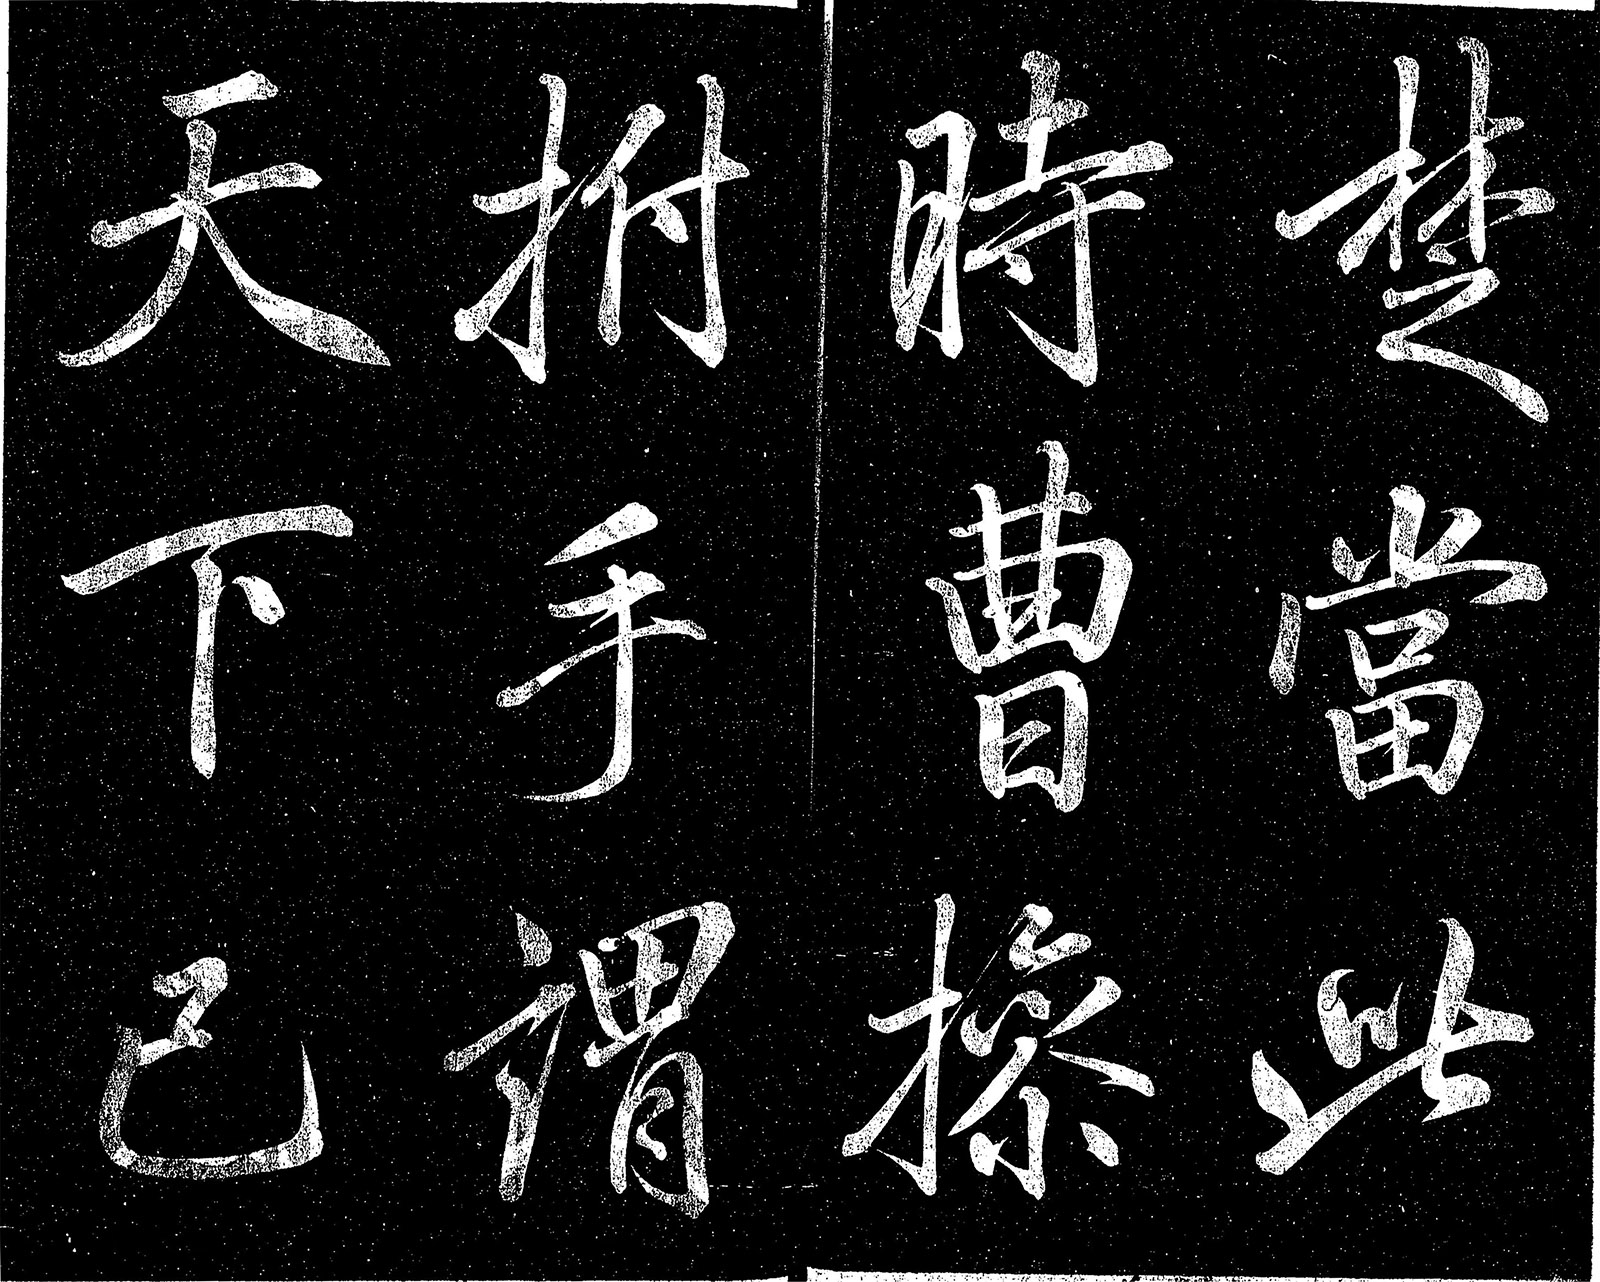 楚當此
時曹操
拊手謂
天下已